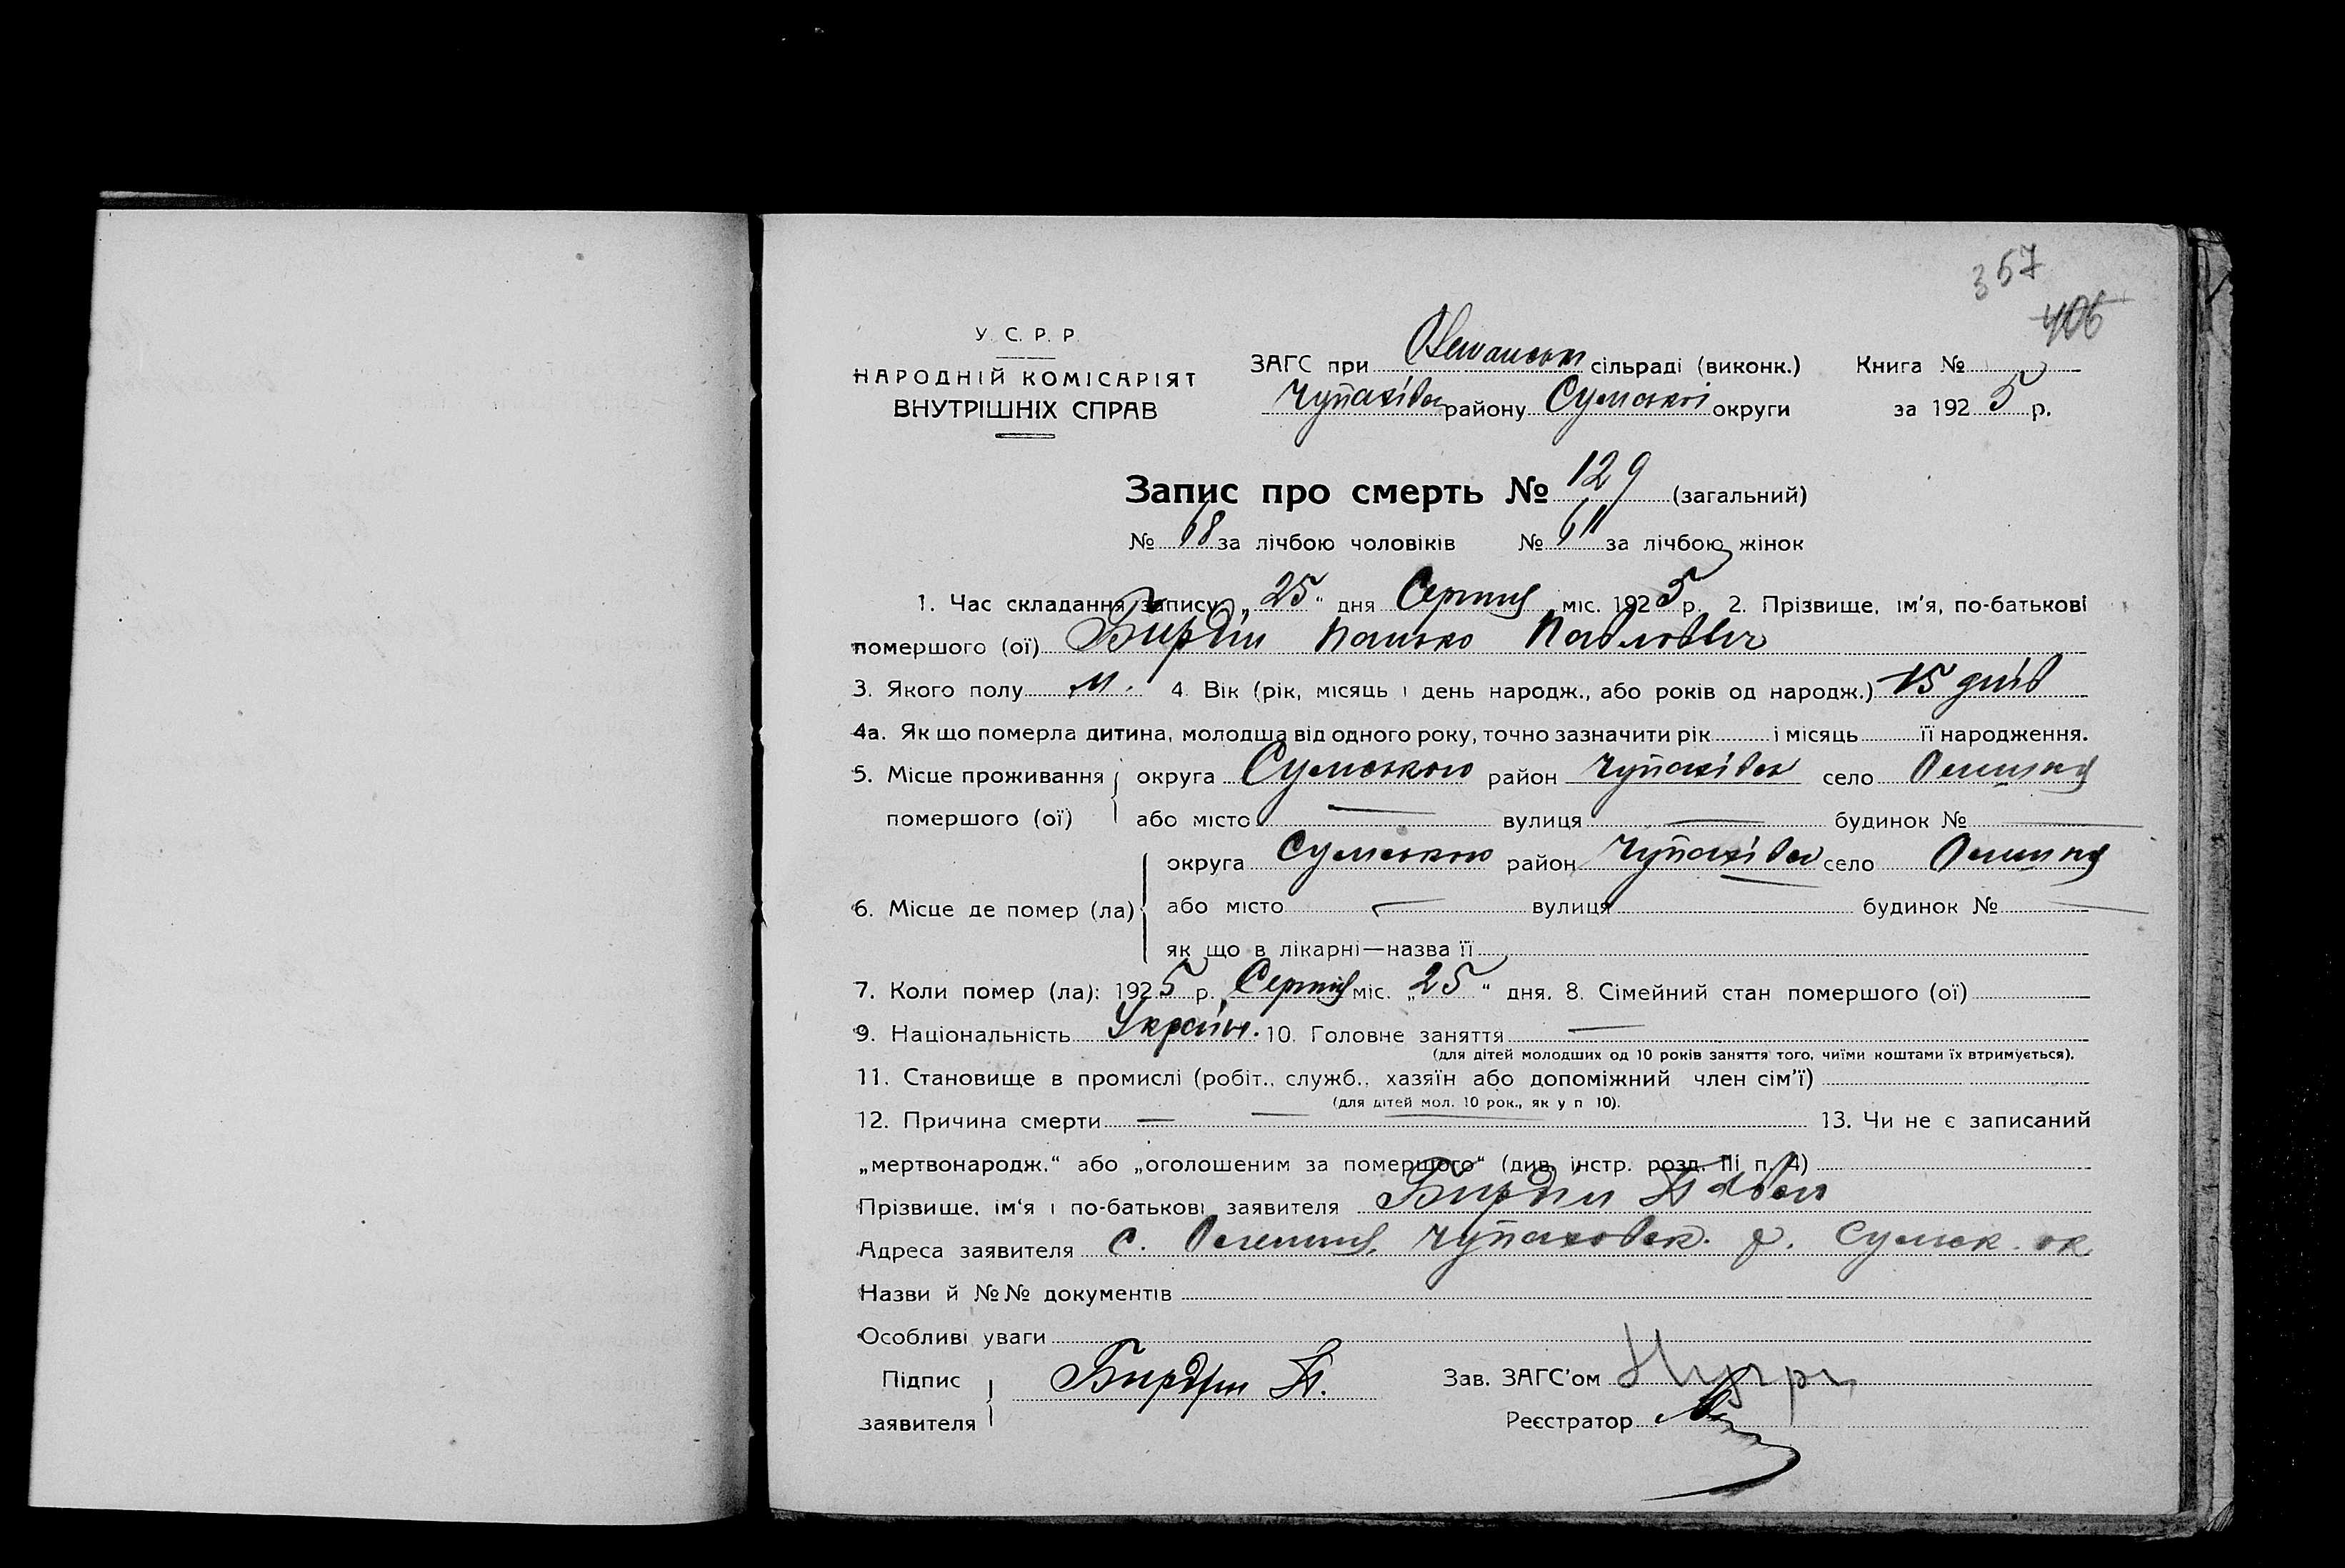 357
406
У. С. Р. Р.
НАРОДНІЙ КОМІСАРІЯТ
ВНУТРІШНІХ СПРАВ
ЗАГС при сільраді (виконк.) Книга №
Чупахівськ району Сумської округи за 1925 р.
Запис про смерть № 129 (загальний)
№ 68 за лічбою чоловіків № 61 за лічбою жінок
1. Час складання запису „25“ дня Серпня міс. 1925 р. 2. Прізвище, ім'я, по-батькові
помершого (ої) Бирдін Панько Павлович
3. Якого полу м. 4. Вік (рік, місяць і день народж., або років од народж.) 15 днів
4а. Як що померла дитина, молодша від одного року, точно зазначити рік і місяць її народження.
5. Місце проживання округа Сумською район Чупахівськ село Олешня
помершого (ої) або місто — вулиця — будинок № —
округа Сумською район Чупахівськ село Олешня
6. Місце де помер (ла) або місто — вулиця будинок № —
як що в лікарні—назва її
7. Коли помер (ла): 1925 р. Серпня міс. „25“ дня. 8. Сімейний стан помершого (ої)
9. Національність Україн. 10. Головне заняття —
(для дітей молодших од 10 років заняття того, чиїми коштами їх втримується).
11. Становище в промислі (робіт., служб., хазяїн або допоміжний член сім'ї)
(для дітей мол. 10 рок., як у п 10).
12. Причина смерти — — — 13. Чи не є записаний
„мертвонародж.“ або „оголошеним за померщого“ (див. інстр. розд. III п. 4)
Прізвище, ім'я і по-батькові заявителя Бирдін Павел
Адреса заявителя с. Олешня, Чупаховск. р. Сумск. ок
Назви й №№ документів
Особливі уваги
Підпис заявителя Бирдін П. Зав. ЗАГС'ом
Реєстратор